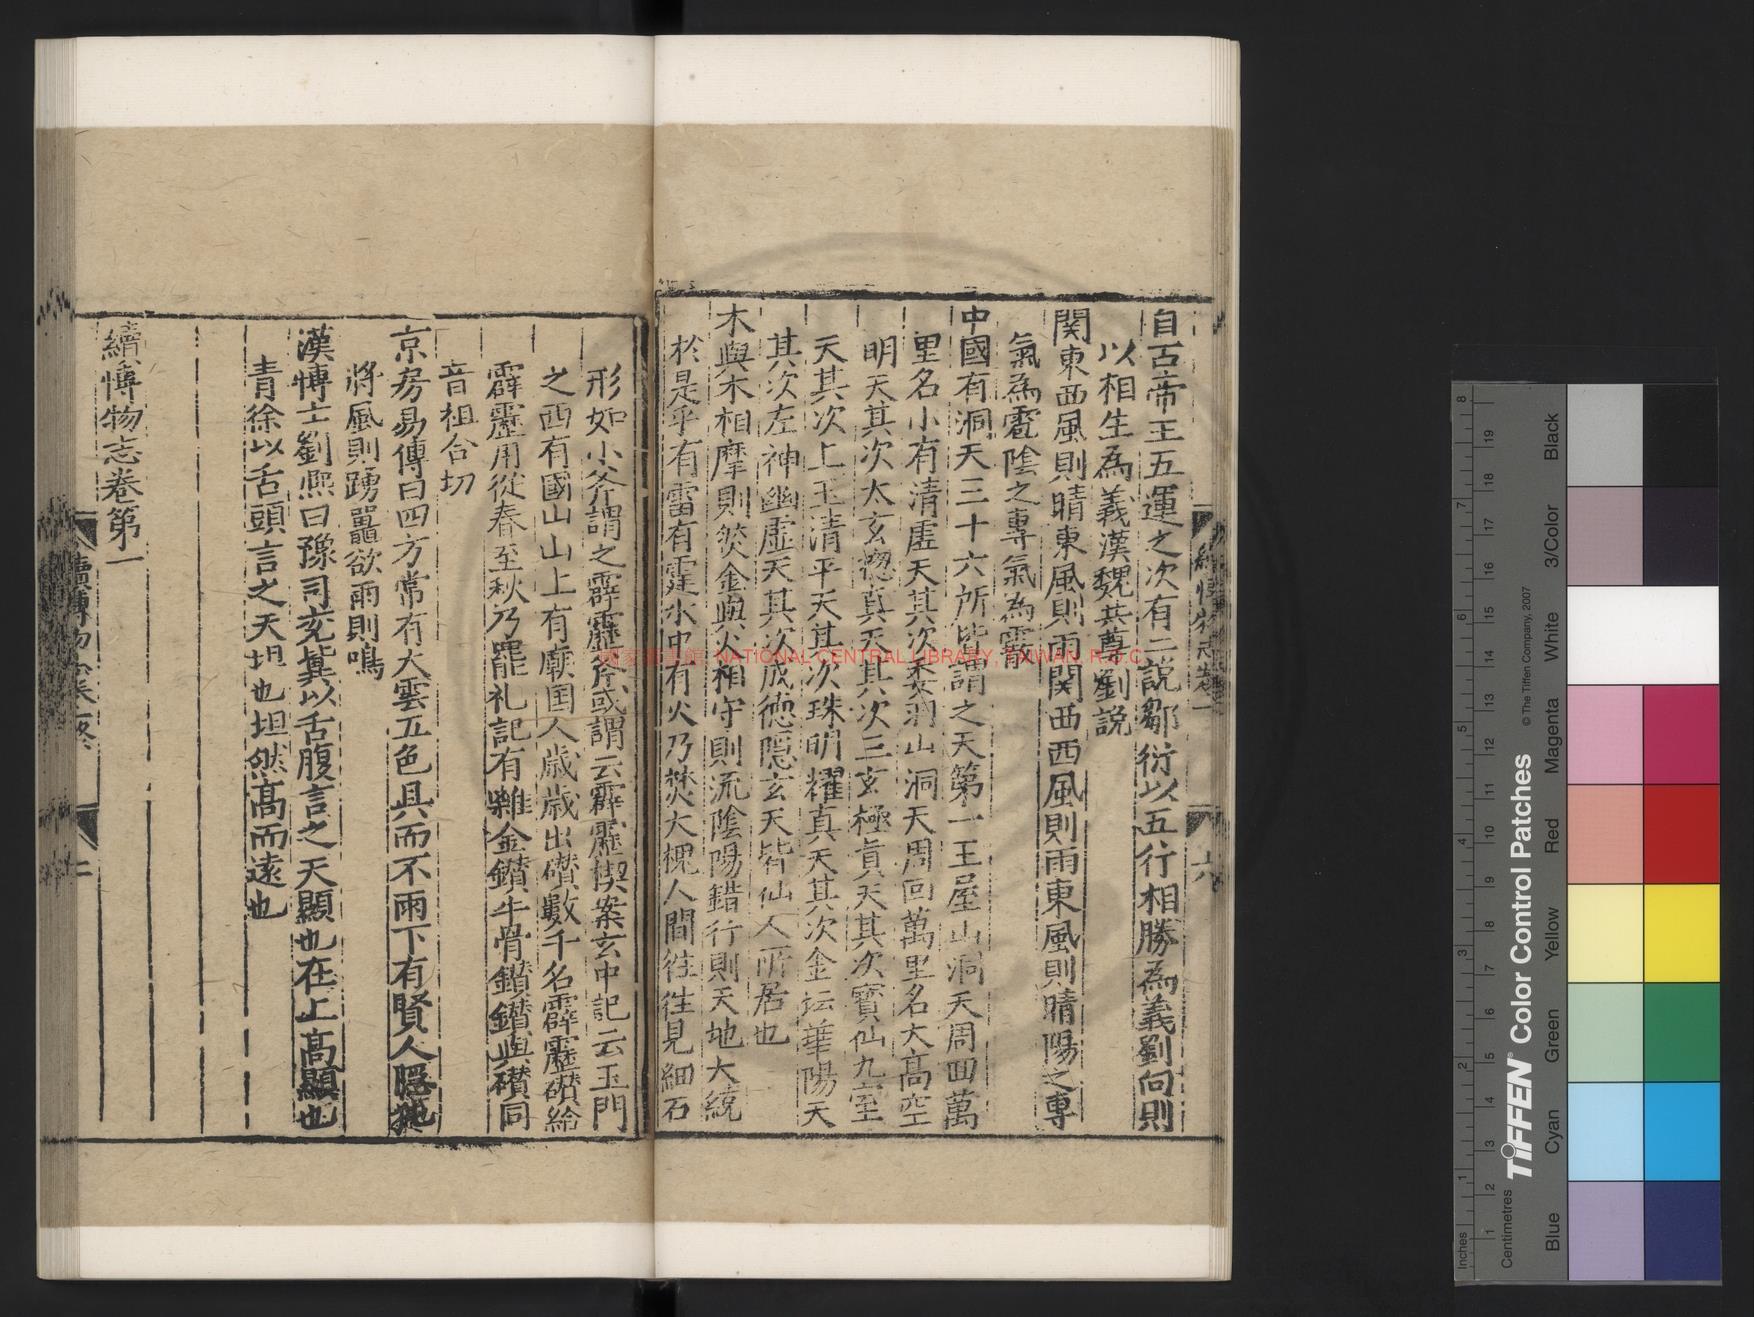 自古帝王五運之次有二説鄒衍以五行相勝為義劉向則
以相生為義漢魏共尊劉説
関東西風則晴東風則雨関西西風則雨東風則晴陽之專
氣為雹陰之專氣為霰
中國有洞天三十六所皆謂之天第一王屋山洞天周回萬
里名小有清虛天其次委羽山洞天周回萬里名大高空
明天其次太玄惣真天其次三玄極真天其次寶仙九室
天其次上玉清平天其次珠明耀真天其次金坛華陽天
其次左神幽虛天其次成德隱玄天皆仙人所居也
木與木相摩則然金與火相守則流陰陽錯行則天地大絯
於是乎有雷有霆水中有火乃焚大槐人間徃徃見細石
形如小斧謂之霹靂斧或謂云霹靂楔案玄中記云玉門
之西有國山山上有廟国人歲歲出礸數千名霹靂礸給
霹靂用從春至秋乃罷礼記有雜金鑽牛骨鑽鑽與礸同
音祖合切
京房易傳曰四方常有大雲五色具而不雨下有賢人隱
將風則踴鼉欲雨則鳴
漢愽士劉熈曰豫司兗冀以舌腹言之天顯也在上高顯也
青徐以舌頭言之天坦也坦然高而遠也
續愽物志卷第一
國家圖書館, NATIONAL CENTRAL LIBRARY, TAIWAN, R.O.C
六
Inches
Centimetres
TIFFEN® Color Control Patches
© The Tiffen Company, 2007
Blue
Cyan
Green
Yellow
Red
Magenta
White
3/Color
Black